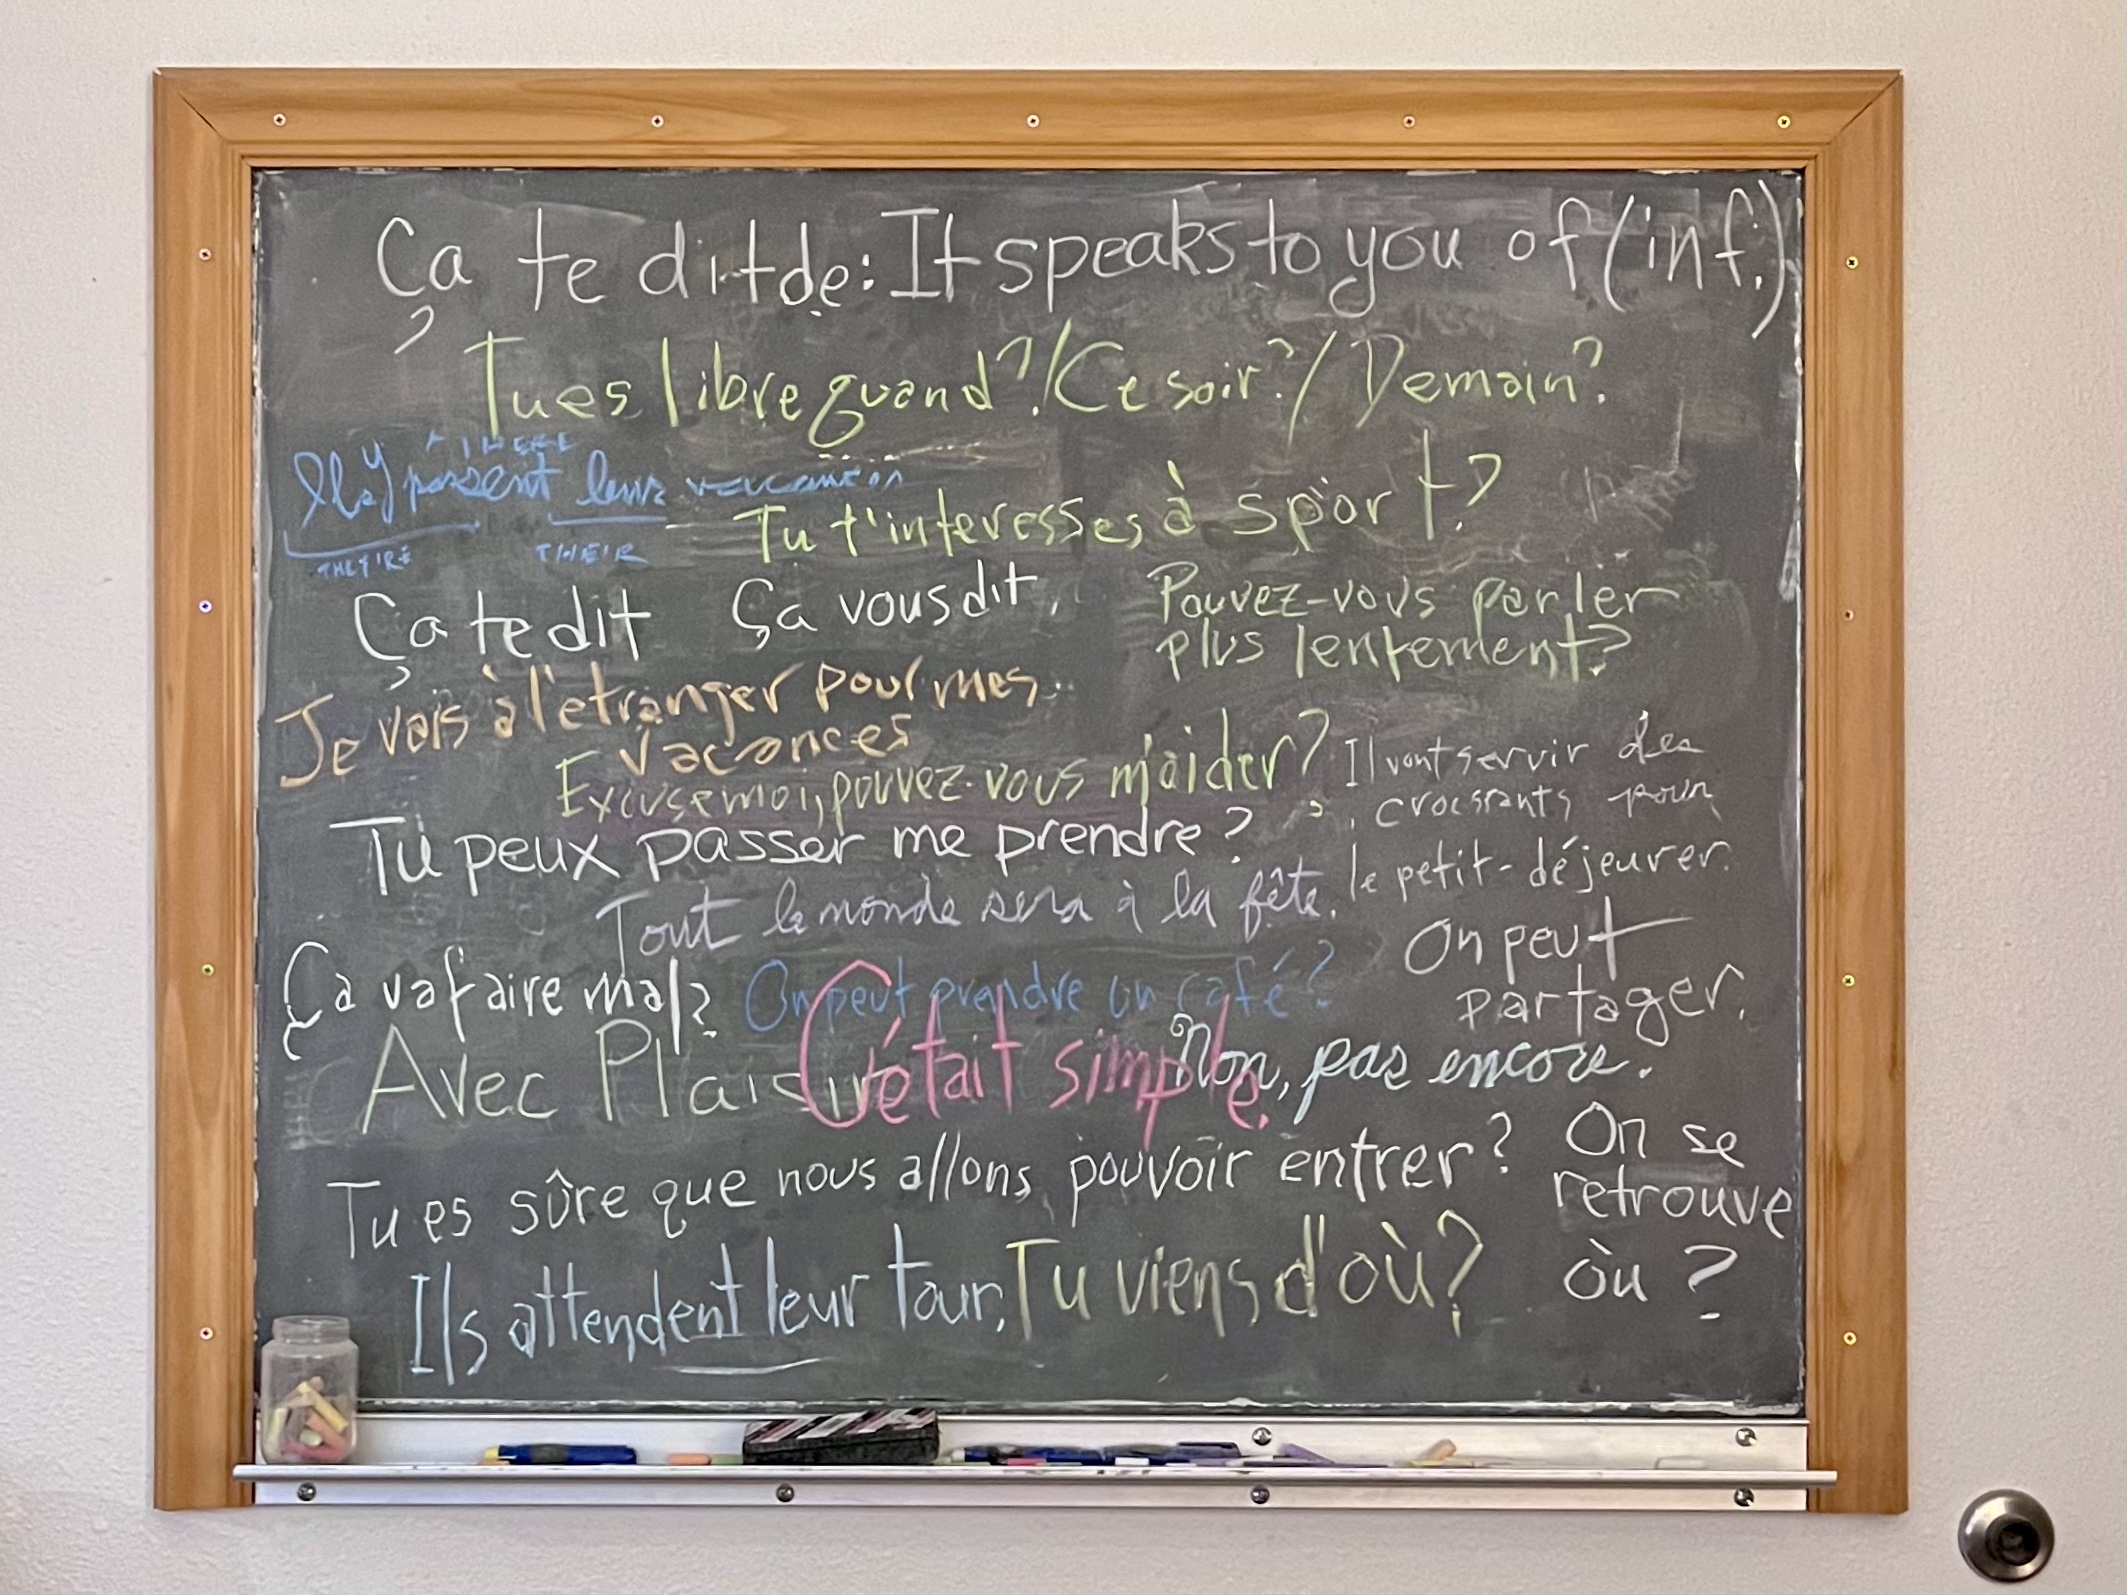 Ça te dit de: It speaks to you of (inf.)
Tu es libre quand?/Ce soir?/Demain?
THERE
Ils y passent leurs
THEY'RE THEIR
Tu t'interesses à sport?
Ça te dit
Ça vous dit.
Pouvez-vous parler
plus lentement?
Je vais à l'etranger pour mes
vacances
Excuse moi, pouvez-vous m'aider?
Il vont servir des
croissants pour
le petit-déjeurer.
Tu peux passer me prendre?
Tout le monde sera à la fête.
On peut
partager.
Ça va faire mal?
On peut prendre un café?
Avec Plaisir
C'était simple.
Non, pas encore.
Tu es sûre que nous allons pouvoir entrer?
On se
retrouve
où?
Ils attendent leur tour.
Tu viens d'où?